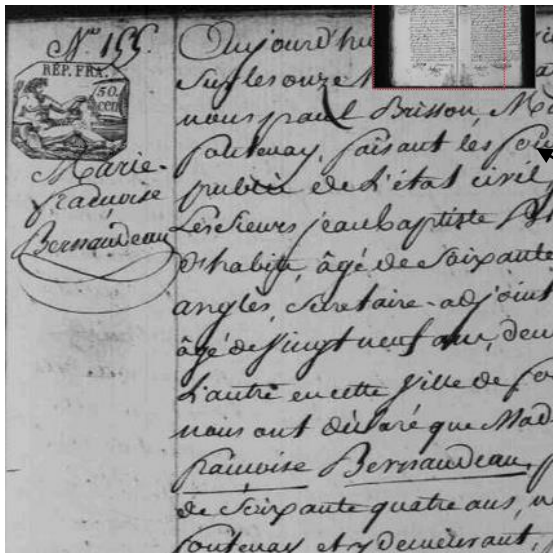 N.ro 155.
RÉP. FRA.
50.
cen.
Marie-
françoise
Bernaudeau
Aujourd'hui
Sur les onze
nous paul Brisson, M
fontenay, faisant les fon
public de l'état civil,
Les Sieurs jean baptiste
d'habits, âgé de Soixante
angles, Secretaire-adjoint
âgé de Vingt neuf ans, dem
L'autre en cette Ville de fo
nous ont déclaré que Mad
françoise Bernaudeau,
de Soixante quatre ans, n
fontenay et y demeurant,